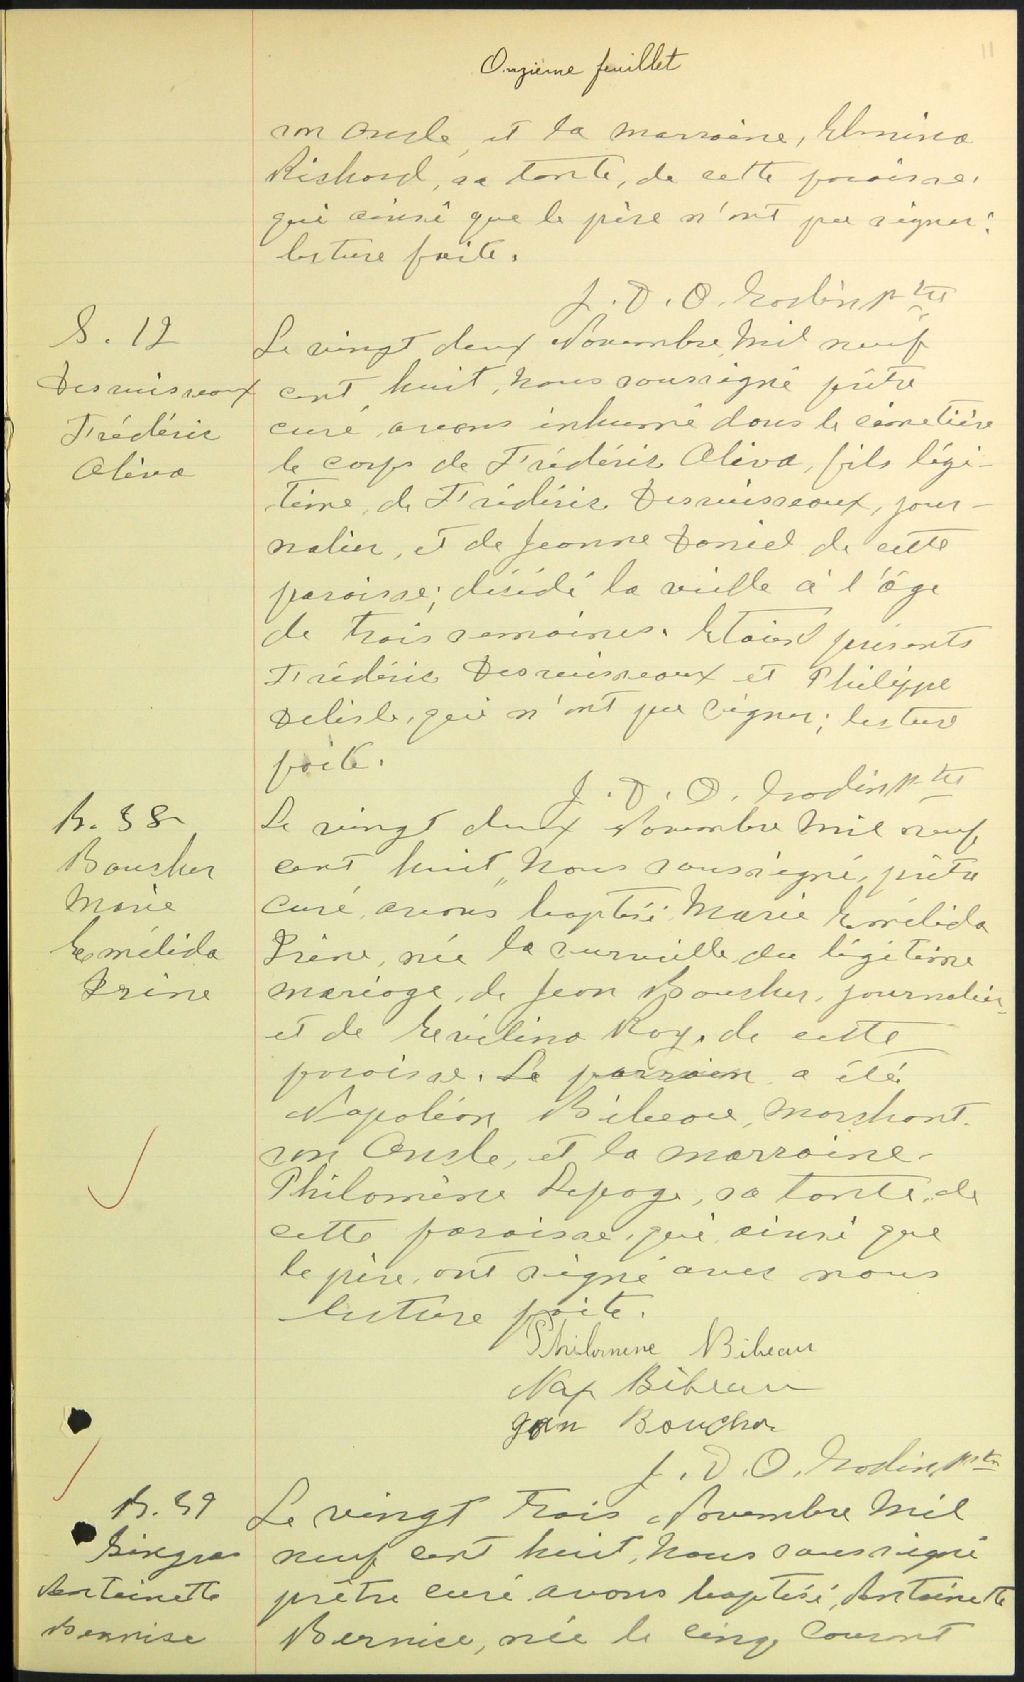 11
Onzième feuillet
son Oncle, et la marraine, Elmina
Richard, sa tante, de cette paroisse,
qui ainsi que le père n'ont pu signer;
lecture faite.
J. D. O. Godin ptre
S. 12
Desruisseaux
Frédéric
Oliva
Le vingt deux Novembre Mil neuf
cent huit, Nous soussigné prêtre
curé, avons inhumé dans le cimetière
le corps de Frédéric Oliva, fils légi-
time, de Frédéric Desruisseaux, jour-
nalier, et de Jeanne Daniel de cette
paroisse; décédé la veille à l'âge
de trois semaines. Etaient présents
Frédéric Desruisseaux et Philippe
Delisle, qui n'ont pu signer; lecture
faite.
J. D. O. Godin ptre
B. 38
Boucher
Marie
Emélida
Irène
Le vingt deux Novembre Mil neuf
cent huit, Nous soussigné, prêtre
curé, avons baptisé, Marie Emélida
Irène, née la surveille du légitime
mariage, de Jean Boucher, journalier,
et de Evélina Roy, de cette
paroisse. Le parrain a été
Napoléon Bibeau, marchant.
son Oncle, et la marraine
Philomène Lepage, sa tante, de
cette paroisse, qui ainsi que
le père, ont signé avec nous
lecture faite.
Philomene Bibeau
Nap Bibeau
Jean Boucher
J. D. O. Godin, ptre
B. 39
Gingras
Antoinette
Bernise
Le vingt trois Novembre Mil
neuf cent huit, Nous soussigné
prêtre curé avons baptisé, Antoinette
Bernice, née le cinq courant